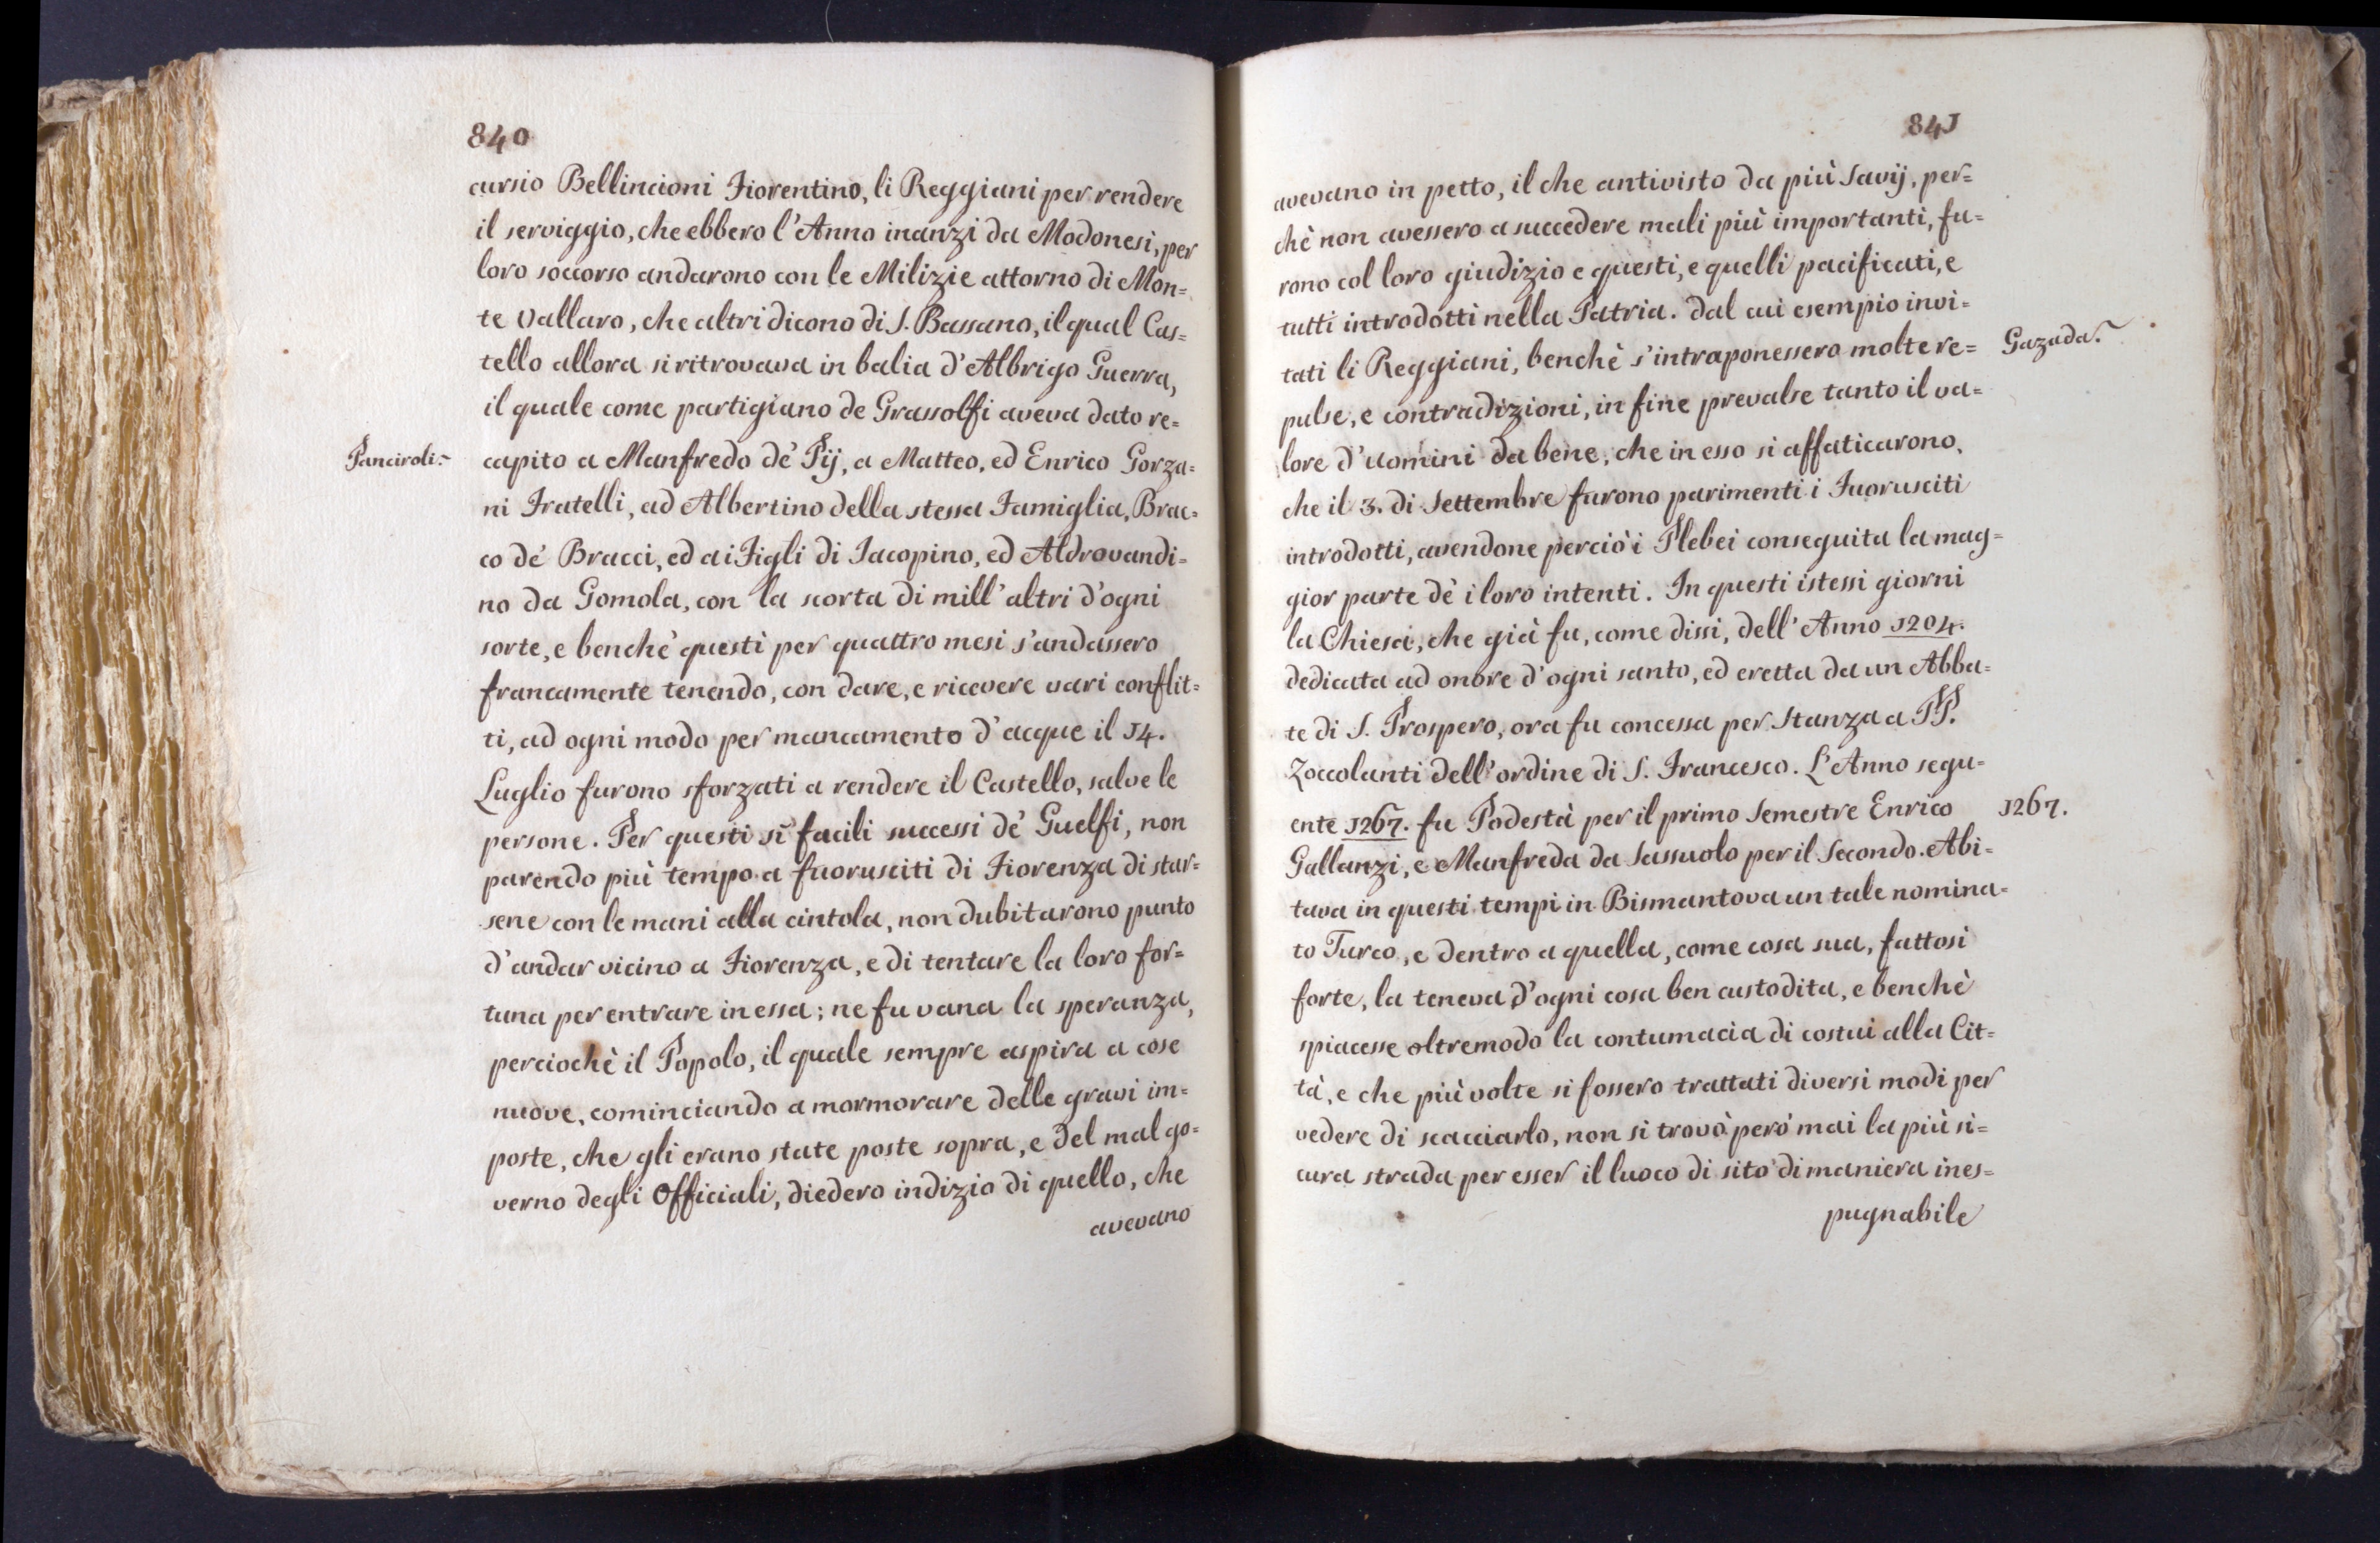 840
cursio Bellincioni Fiorentino, li Reggiani per rendere
il serviggio, che ebbero l'Anno inanzi da Modonesi, per
loro soccorso andarono con le Milizie attorno di Mon=
te Vallaro, che altri dicono di S. Bassano, il qual Cas=
tello allora si ritrovava in balia d'Albrigo Guerra,
il quale come partigiano de Grassolfi aveva dato re=
Panciroli.
capito a Manfredo de' Pij, a Matteo, ed Enrico Gorza=
ni Fratelli, ad Albertino della stessa Famiglia, Brac=
co de' Bracci, ed ai Figli di Iacopino, ed Aldrovandi=
no da Gomola, con la scorta di mill'altri d'ogni
sorte, e benchè questi per quattro mesi s'andassero
francamente tenendo, con dare, e ricevere vari conflit=
ti, ad ogni modo per mancamento d'acque il 14.
Luglio furono sforzati a rendere il Castello, salve le
persone. Per questi sì facili successi de' Guelfi, non
parendo più tempo a fuorusciti di Fiorenza di star=
sene con le mani alla cintola, non dubitarono punto
d'andar vicino a Fiorenza, e di tentare la loro for=
tuna per entrare in essa; ne fu vana la speranza,
perciochè il Popolo, il quale sempre aspira a cose
nuove, cominciando a mormorare delle gravi im=
poste, che gli erano state poste sopra, e del mal go=
verno degli Officiali, diedero indizio di quello, che
avevano
841
avevano in petto, il che antivisto da più Savij, per=
chè non avessero a succedere mali più importanti, fu=
rono col loro giudizio e questi, e quelli pacificati, e
tutti introdotti nella Patria. Dal cui esempio invi=
tati li Reggiani, benchè s'intraponessero molte re=
Gazada.
pulse, e contradizioni, in fine prevalse tanto il va=
lore d'uomini da bene, che in esso si affaticarono,
che il 3. di Settembre furono parimenti i Fuorusciti
introdotti, avendone perciò i Plebei conseguita la mag=
gior parte dè i loro intenti. In questi istessi giorni
la Chiesa, che già fu, come dissi, dell'Anno 1204.
dedicata ad onore d'ogni santo, ed eretta da un Abba=
te di S. Prospero, ora fu concessa per Stanza a PP.
Zoccolanti dell'ordine di S. Francesco. L'Anno segu=
ente 1267. fu Podestà per il primo Semestre Enrico
1267.
Gallanzi, e Manfreda da Sassuolo per il Secondo. Abi=
tava in questi tempi in Bismantova un tale nomina=
to Turco, e dentro a quella, come cosa sua, fattosi
forte, la teneva d'ogni cosa ben custodita, e benchè
spiacesse oltremodo la contumacia di costui alla Cit=
tà, e che più volte si fossero trattati diversi modi per
vedere di scacciarlo, non si trovò però mai la più si=
cura strada per esser il luoco di sito di maniera ines=
pugnabile